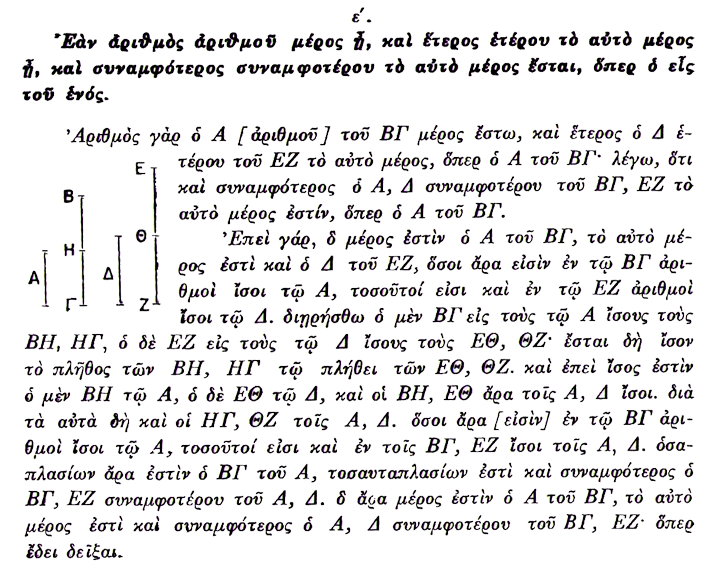 ε΄.
Ἐὰν ἀριθμὸς ἀριθμοῦ μέρος ᾖ, καὶ ἕτερος ἑτέρου τὸ αὐτὸ μέρος
ᾖ, καὶ συναμφότερος συναμφοτέρου τὸ αὐτὸ μέρος ἔσται, ὅπερ ὁ εἷς
τοῦ ἑνός.
Ἀριθμὸς γὰρ ὁ Α [ἀριθμοῦ] τοῦ ΒΓ μέρος ἔστω, καὶ ἕτερος ὁ Δ ἑ-
τέρου τοῦ ΕΖ τὸ αὐτὸ μέρος, ὅπερ ὁ Α τοῦ ΒΓ· λέγω, ὅτι
καὶ συναμφότερος ὁ Α, Δ συναμφοτέρου τοῦ ΒΓ, ΕΖ τὸ
αὐτὸ μέρος ἐστίν, ὅπερ ὁ Α τοῦ ΒΓ.
Ἐπεὶ γάρ, ὃ μέρος ἐστὶν ὁ Α τοῦ ΒΓ, τὸ αὐτὸ μέ-
ρος ἐστὶ καὶ ὁ Δ τοῦ ΕΖ, ὅσοι ἄρα εἰσὶν ἐν τῷ ΒΓ ἀρι-
θμοὶ ἴσοι τῷ Α, τοσοῦτοί εἰσι καὶ ἐν τῷ ΕΖ ἀριθμοὶ
ἴσοι τῷ Δ. διῃρήσθω ὁ μὲν ΒΓ εἰς τοὺς τῷ Α ἴσους τοὺς
ΒΗ, ΗΓ, ὁ δὲ ΕΖ εἰς τοὺς τῷ Δ ἴσους τοὺς ΕΘ, ΘΖ· ἔσται δὴ ἴσον
τὸ πλῆθος τῶν ΒΗ, ΗΓ τῷ πλήθει τῶν ΕΘ, ΘΖ. καὶ ἐπεὶ ἴσος ἐστὶν
ὁ μὲν ΒΗ τῷ Α, ὁ δὲ ΕΘ τῷ Δ, καὶ οἱ ΒΗ, ΕΘ ἄρα τοῖς Α, Δ ἴσοι. διὰ
τὰ αὐτὰ δὴ καὶ οἱ ΗΓ, ΘΖ τοῖς Α, Δ. ὅσοι ἄρα [εἰσὶν] ἐν τῷ ΒΓ ἀρι-
θμοὶ ἴσοι τῷ Α, τοσοῦτοί εἰσι καὶ ἐν τοῖς ΒΓ, ΕΖ ἴσοι τοῖς Α, Δ. ὁσα-
πλασίων ἄρα ἐστὶν ὁ ΒΓ τοῦ Α, τοσαυταπλασίων ἐστὶ καὶ συναμφότερος ὁ
ΒΓ, ΕΖ συναμφοτέρου τοῦ Α, Δ. ὃ ἄρα μέρος ἐστὶν ὁ Α τοῦ ΒΓ, τὸ αὐτὸ
μέρος ἐστὶ καὶ συναμφότερος ὁ Α, Δ συναμφοτέρου τοῦ ΒΓ, ΕΖ· ὅπερ
ἔδει δεῖξαι.
Ε
Β
Η
Θ
Α
Δ
Γ
Ζ